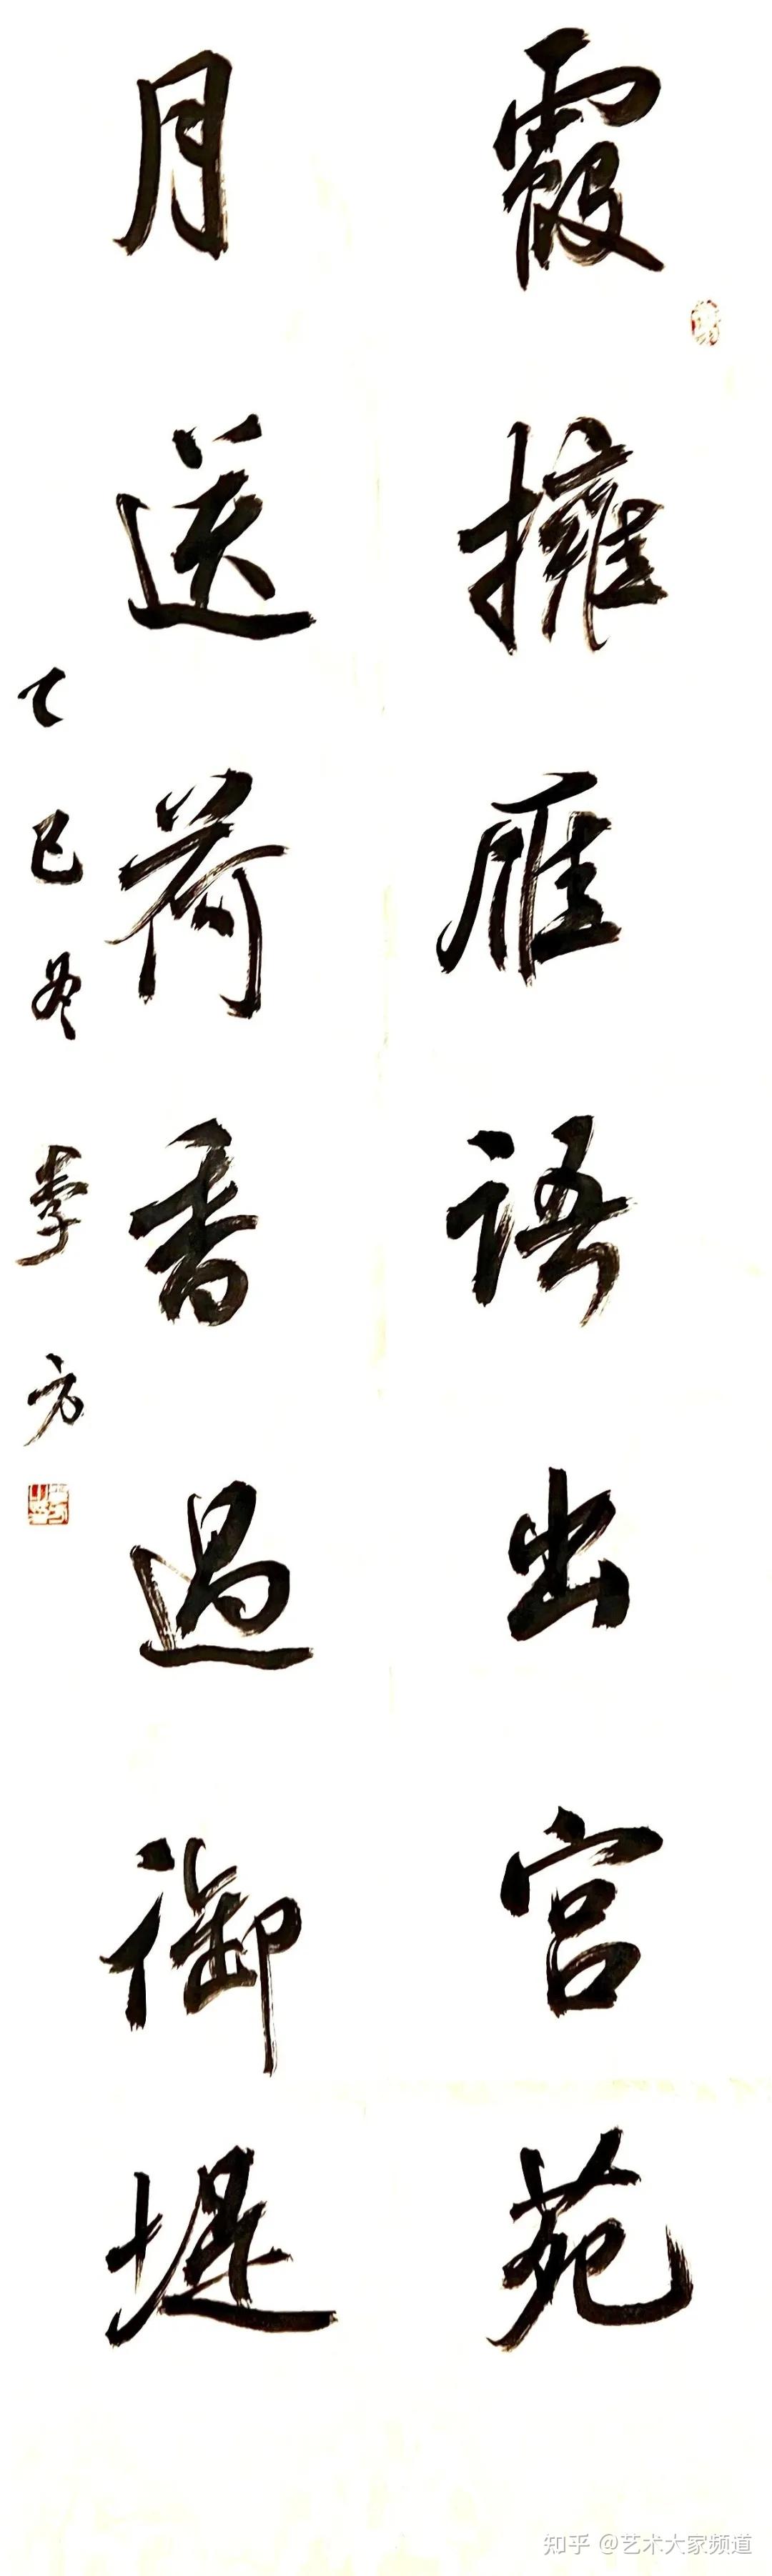 霞擁雁語出宮苑
月送荷香過御堤
乙巳冬 李方
知乎 @艺术大家频道